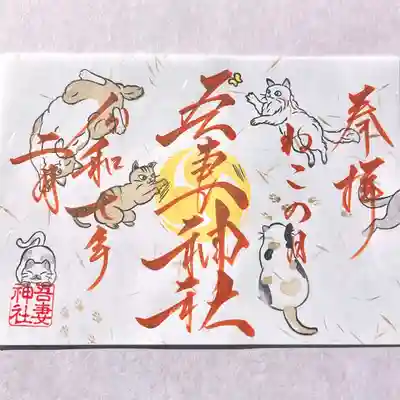 奉拝
ねこの日
吾妻神社
令和七年
二月
吾妻
神社